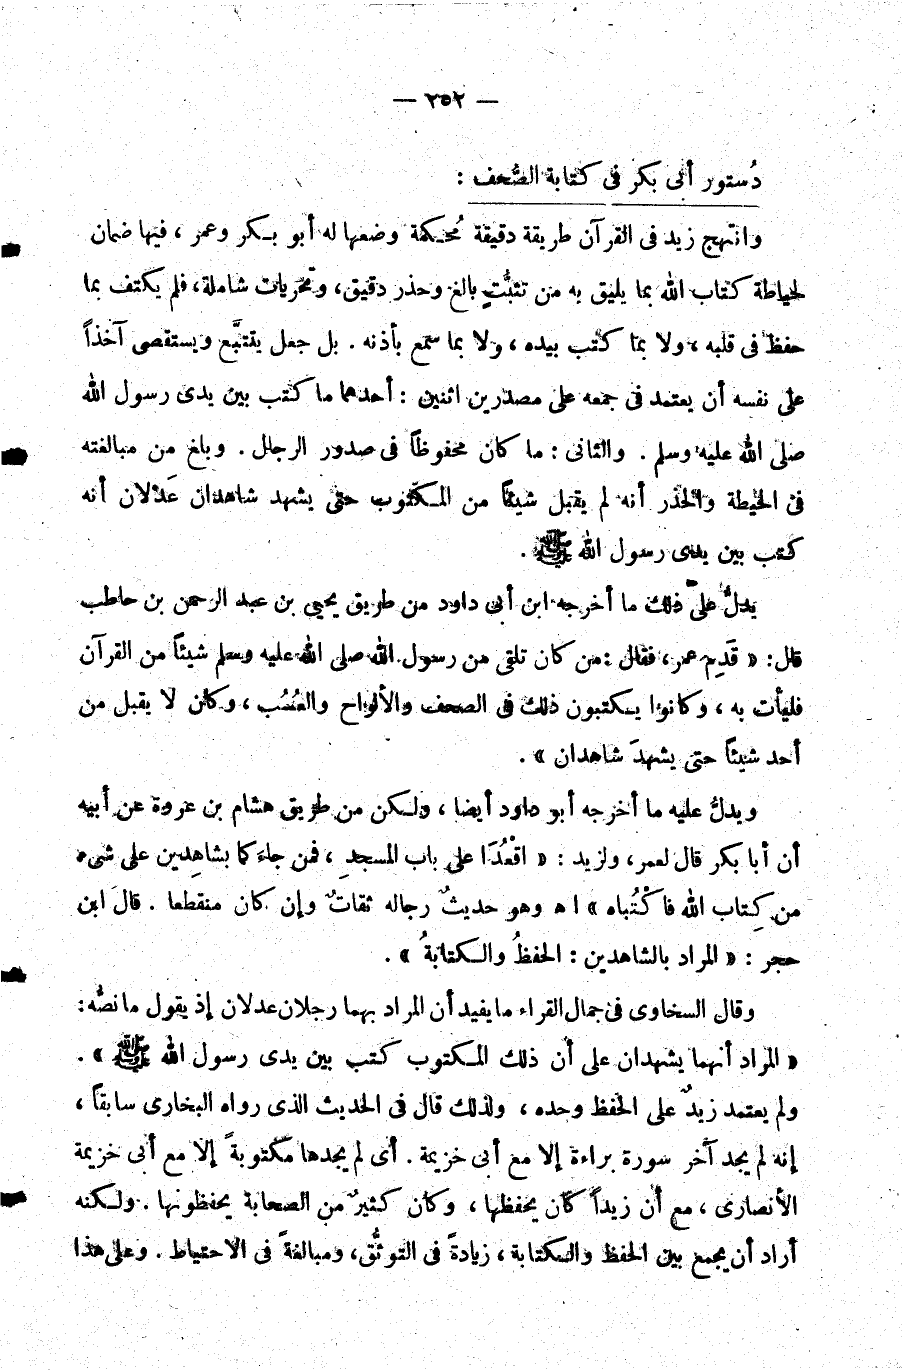 — ٢٥٢ —
دُستور أبى بكر فى كتابة الصُّحف :
وانتهج زيد فى القرآن طريقة دقيقة مُحكمة وضعها له أبو بكر وعمر ، فيها ضمان
لحياطة كتاب الله بما يليق به من تثبُّتٍ بالغ وحذر دقيق، وتحرّيات شاملة، فلم يكتف بما
حفظ فى قلبه ، ولا بما كتب بيده ، ولا بما سمع بأذنه . بل جعل يتتبَّع ويستقصى آخذاً
على نفسه أن يعتمد فى جمعه على مصدرين اثنين : أحدهما ما كتب بين يدى رسول الله
صلى الله عليه وسلم . والثانى : ما كان محفوظاً فى صدور الرجال . وبلغ من مبالغته
فى الحيطة والحذر أنه لم يقبل شيئاً من المكتوب حتى يشهد شاهدان عَدْلان أنه
كتب بين يدى رسول الله ﷺ .
يدلُّ على ذلك ما أخرجه ابن أبى داود من طريق يحيى بن عبد الرحمن بن حاطب
قال: « قَدِم عمر ، فقال : من كان تلقى من رسول الله صلى الله عليه وسلم شيئاً من القرآن
فليأت به ، وكانوا يكتبون ذلك فى الصحف والألواح والعُسُب ، وكان لا يقبل من
أحد شيئاً حتى يشهدَ شاهدان » .
ويدلُّ عليه ما أخرجه أبو داود أيضا ، ولكن من طريق هشام بن عروة عن أبيه
أن أبا بكر قال لعمر، ولزيد : « اقْعُدَا على باب المسجدِ ، فمن جاءَكما بشاهِدين على شىء
من كِتاب الله فاكْتُباه » ا ه وهو حديثٌ رجاله ثقاتٌ وإن كان منقطعا . قالَ ابن
حجر : « المراد بالشاهدين : الحفظُ والكتابةُ » .
وقال السخاوى فى جمال القراء ما يفيد أن المراد بهما رجلان عدلان إذ يقول ما نصُّه:
« المراد أنهما يشهدان على أن ذلك المكتوب كتب بين يدى رسول الله ﷺ » .
ولم يعتمد زيدٌ على الحفظ وحده ، ولذلك قال فى الحديث الذى رواه البخارى سابقاً ،
إنه لم يجد آخر سورة براءة إلا مع أبى خزيمة . أى لم يجدها مكتوبةً إلا مع أبى خزيمة
الأنصارى ، مع أن زيداً كان يحفظها ، وكان كثيرٌ من الصحابة يحفظونها . ولكنه
أراد أن يجمع بين الحفظ والكتابة ، زيادةً فى التوثُّق، ومبالغةً فى الاحتياط . وعلى هذا